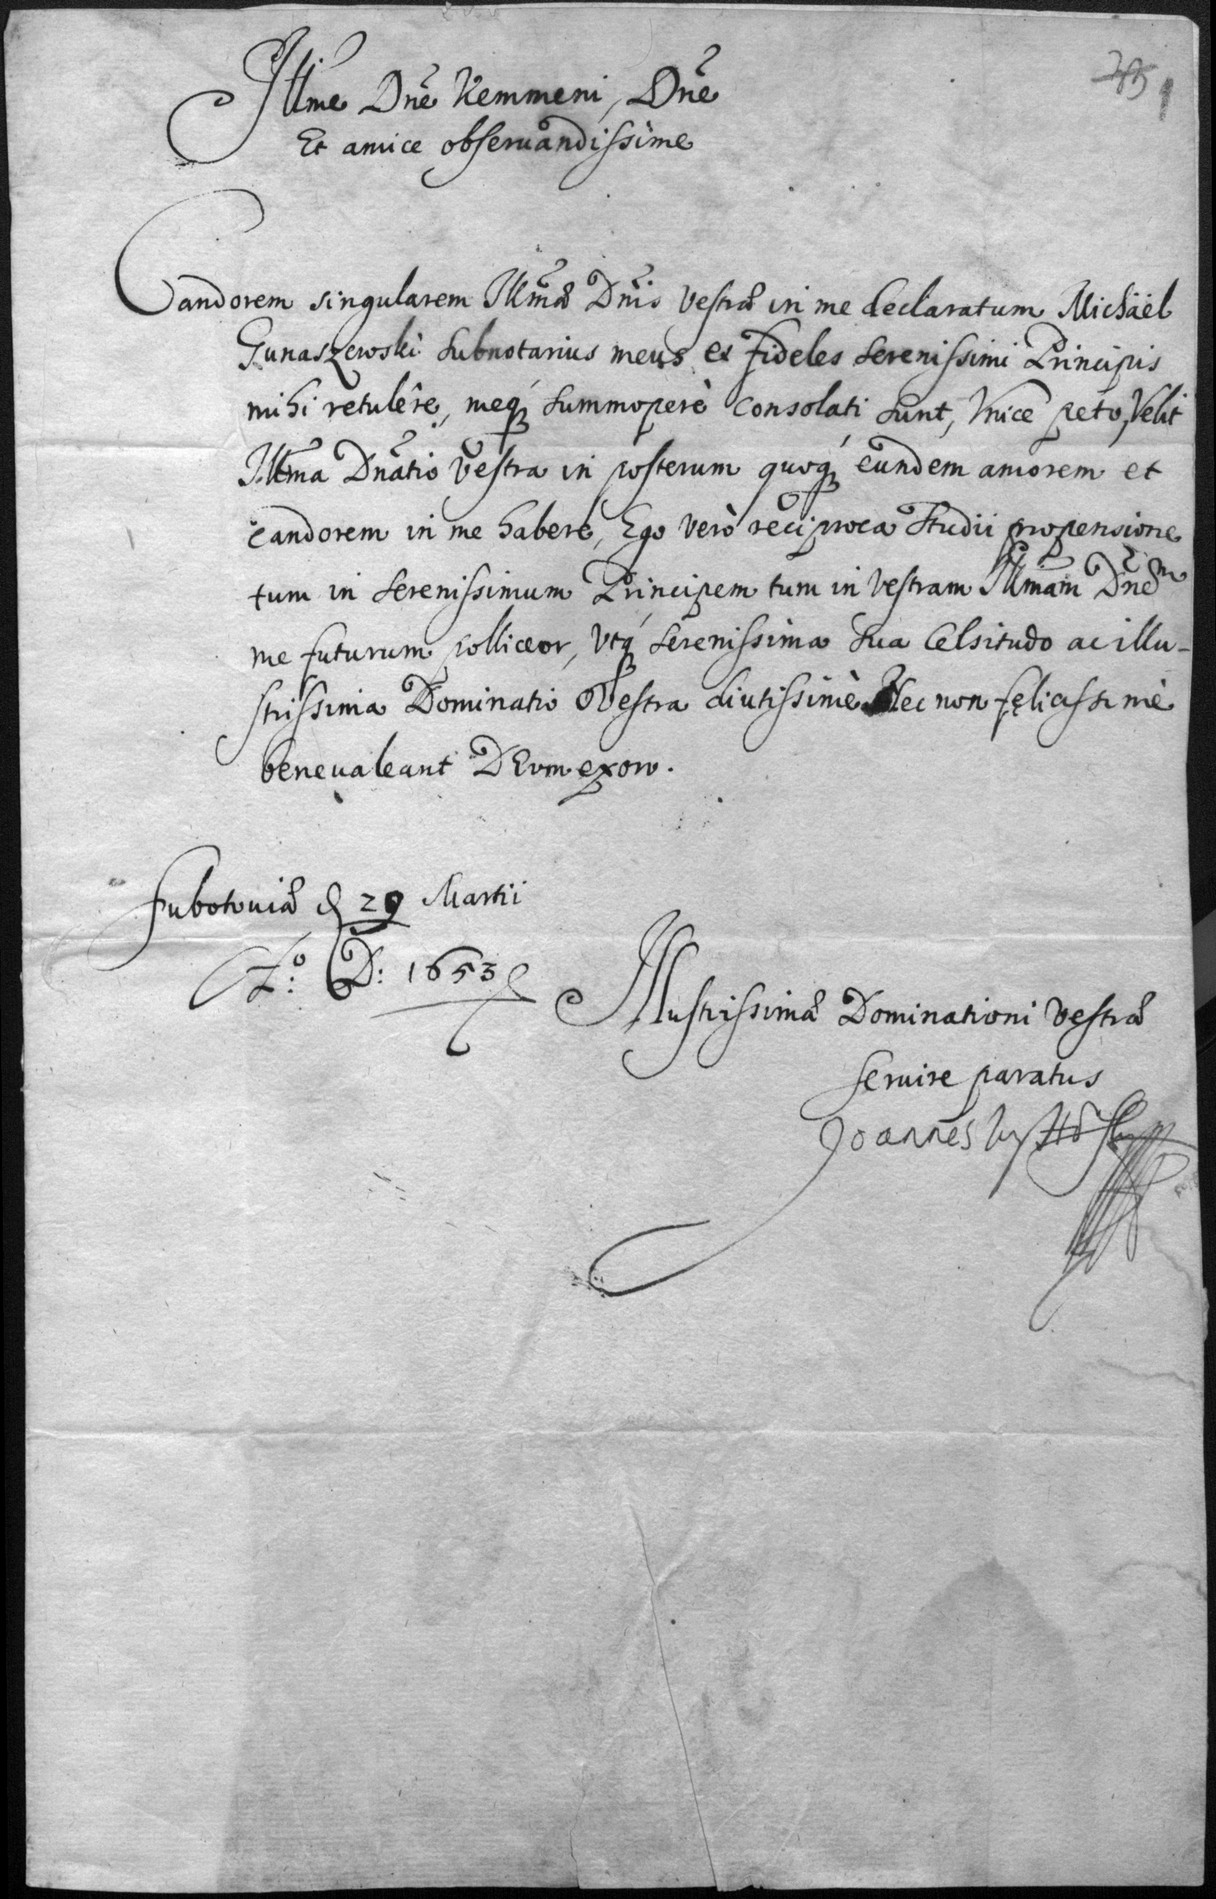 Illme Dne Kemmeni, Dne
Et amice obseruandissime
Candorem singularem Illmæ Dnis Vestræ in me declaratum Michäel
Gunaszewski Subnotarius meus et fideles Serenissimi Principis
mihi retulêre, meq́ue summoperè consolati sunt, Vnicè peto, Velit
Illma Dnatio Vestra in posterum quoq́ue eundem amorem et
candorem in me habere, Ego verò reciproca Studii propensione
tum in Serenissimum Principem tum in Vestram Illmam Dnem
me futurum polliceor, Vtq́ue Serenissima Sua Celsitudo ac illu-
strissima Dominatio Vestra diutissimè Nec non fęlicissimè
beneualeant DEvm exoro.
Subotouiæ d 29 Martii
Ao: D: 1653
Illustrissimæ Dominationi Vestræ
seruire paratus
Joannes